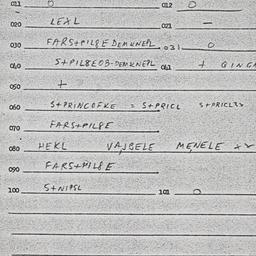 011 0 012 0
020 LEXL 021 —
030 FARS+PILSE DEMKNEPL 031 0
040 S+PILSEOB-DEMKNEPL 041 +
050 +
060 S+PRINCOFKE = S+PRICL
070 FARS+PILSE
080 HEKL VAJBELE MENELE
090 FARS+PILSE
100 S+NIPSL 101 0